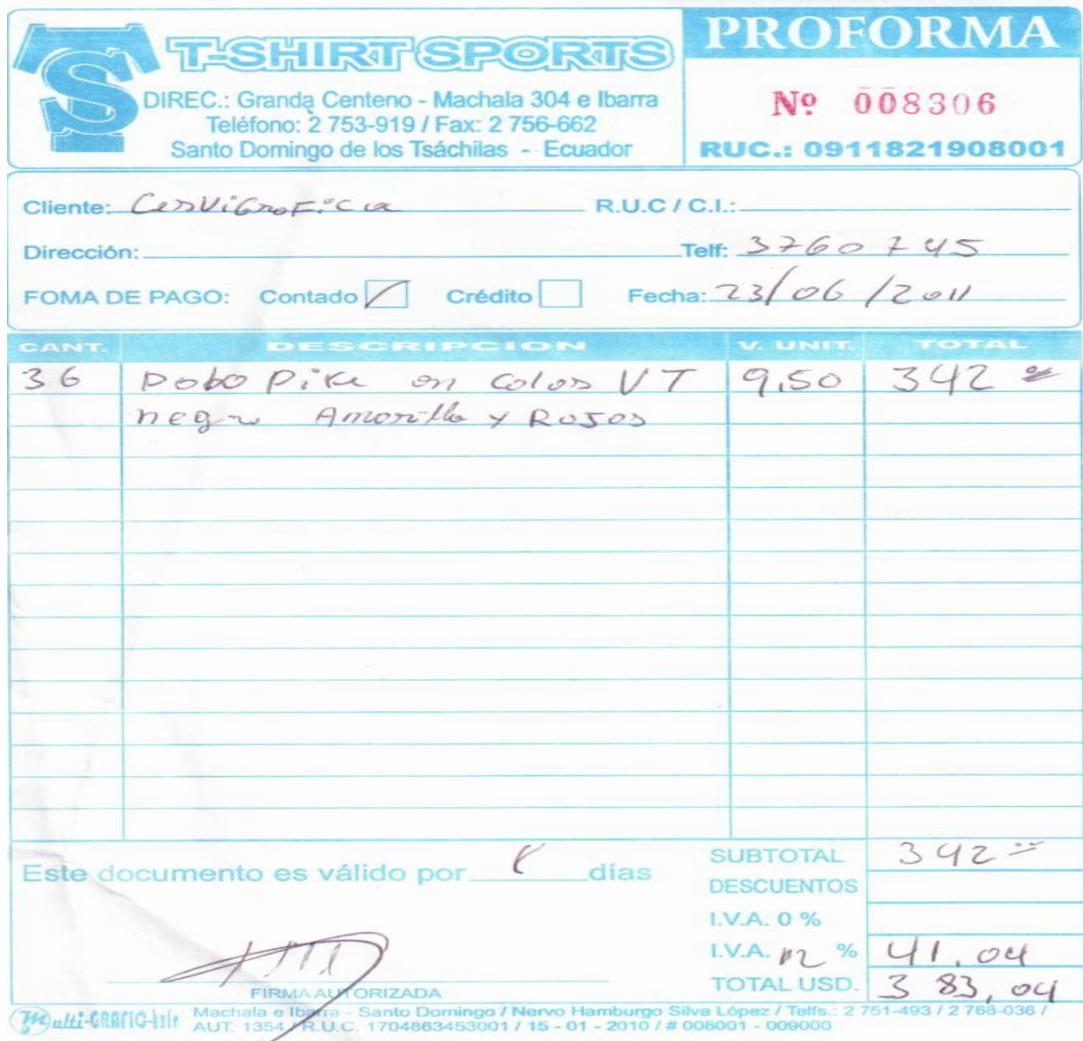 T-SHIRT SPORTS
DIREC.: Granda Centeno - Machala 304 e Ibarra
Teléfono: 2 753-919 / Fax: 2 756-662
Santo Domingo de los Tsáchilas - Ecuador
PROFORMA
Nº 008306
RUC.: 0911821908001
Cliente: R.U.C / C.I.:
Dirección: Telf: 3760745
FOMA DE PAGO: Contado Crédito Fecha: 23/06/2011
CANT. DESCRIPCION V. UNIT. TOTAL
36 Polo Pike en Color VT 9,50 342 00
negro Amarillo y Rojos
Este documento es válido por días
FIRMA AUTORIZADA
SUBTOTAL 342 00
DESCUENTOS
I.V.A. 0 %
I.V.A. 12 % 41,04
TOTAL USD. 383,04
Multi-GRAFIC-hole Machala e Ibarra - Santo Domingo / Nervo Hamburgo Silva López / Telfs.: 2 751-493 / 2 768-036 /
AUT. 1354 / R.U.C. 1704863453001 / 15 - 01 - 2010 / # 008001 - 009000